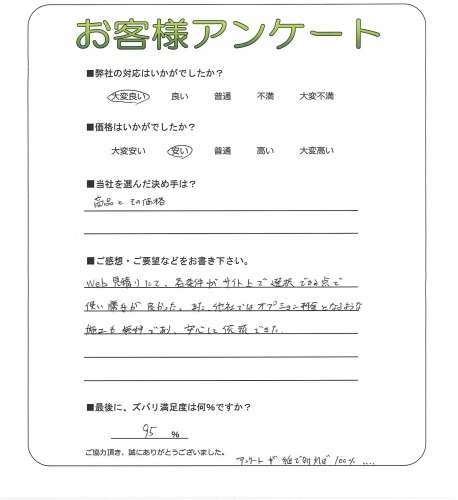 お客様アンケート
■弊社の対応はいかがでしたか？
大変良い 良い 普通 不満 大変不満
■価格はいかがでしたか？
大変安い 安い 普通 高い 大変高い
■当社を選んだ決め手は？
商品とその価格
■ご感想・ご要望などをお書き下さい。
Web見積りにて、各条件がサイト上で選択できる点で
使い勝手が良かった。また、他社ではオプション料金となるような
施工も無料であり、安心して依頼できた。
■最後に、ズバリ満足度は何％ですか？
95 %
ご協力頂き、誠にありがとうございました。
アンケートが紙で無ければ100% ....